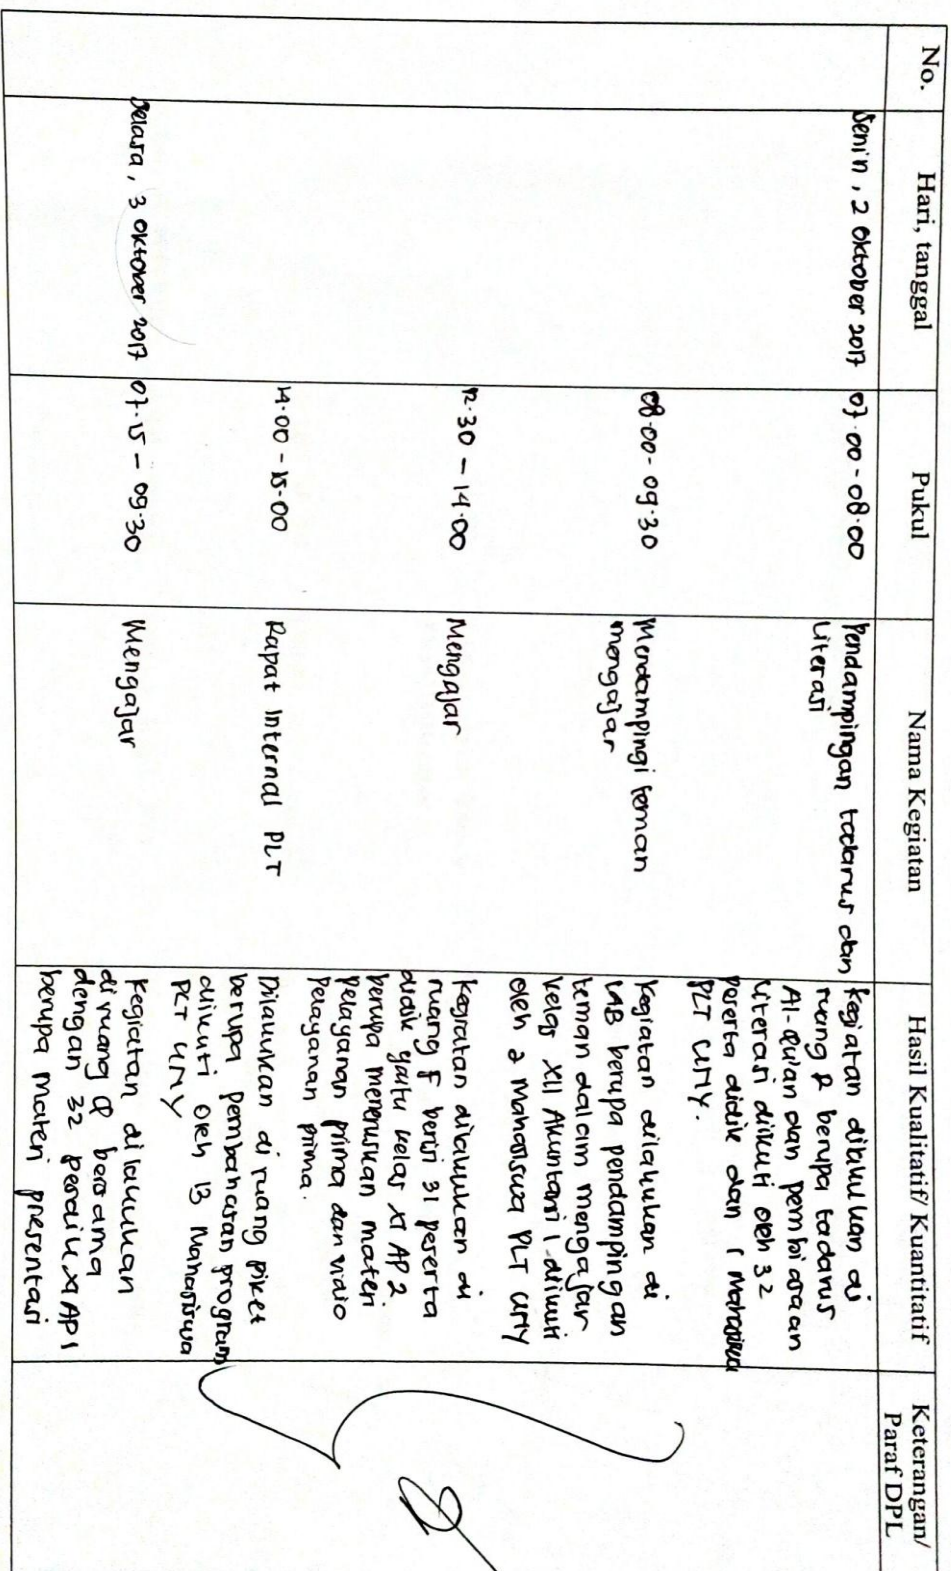 No.
Hari, tanggal
Pukul
Nama Kegiatan
Hasil Kualitatif/ Kuantitatif
Keterangan/
Paraf DPL
Senin, 2 Oktober 2017
07.00 - 08.00
Pendampingan tadarus dan
Literasi
Kegiatan dilakukan di
ruang 2 berupa tadarus
Al-Qur'an dan pembiasaan
Literasi diikuti oleh 32
peserta didik dan 1 Mahasiswa
PLT UNY.
08.00 - 09.30
Mendampingi teman
mengajar
Kegiatan dilakukan di
LAB berupa pendampingan
teman dalam mengajar
kelas XII Akuntansi 1 diikuti
oleh 2 Mahasiswa PLT UNY
12.30 - 14.00
Mengajar
Kegiatan dilakukan di
ruang 5 berisi 31 peserta
didik yaitu kelas XI AP 2
berupa meneruskan materi
pelayanan prima dan vidio
Pelayanan prima.
14.00 - 15.00
Rapat Internal PLT
Dilakukan di ruang piket
berupa pembahasan program
diikuti oleh 13 Mahasiswa
PLT UNY
Selasa, 3 Oktober 2017
07.15 - 09.30
Mengajar
Kegiatan dilakukan
di ruang bersama
dengan 32 XI AP1
berupa materi presentasi